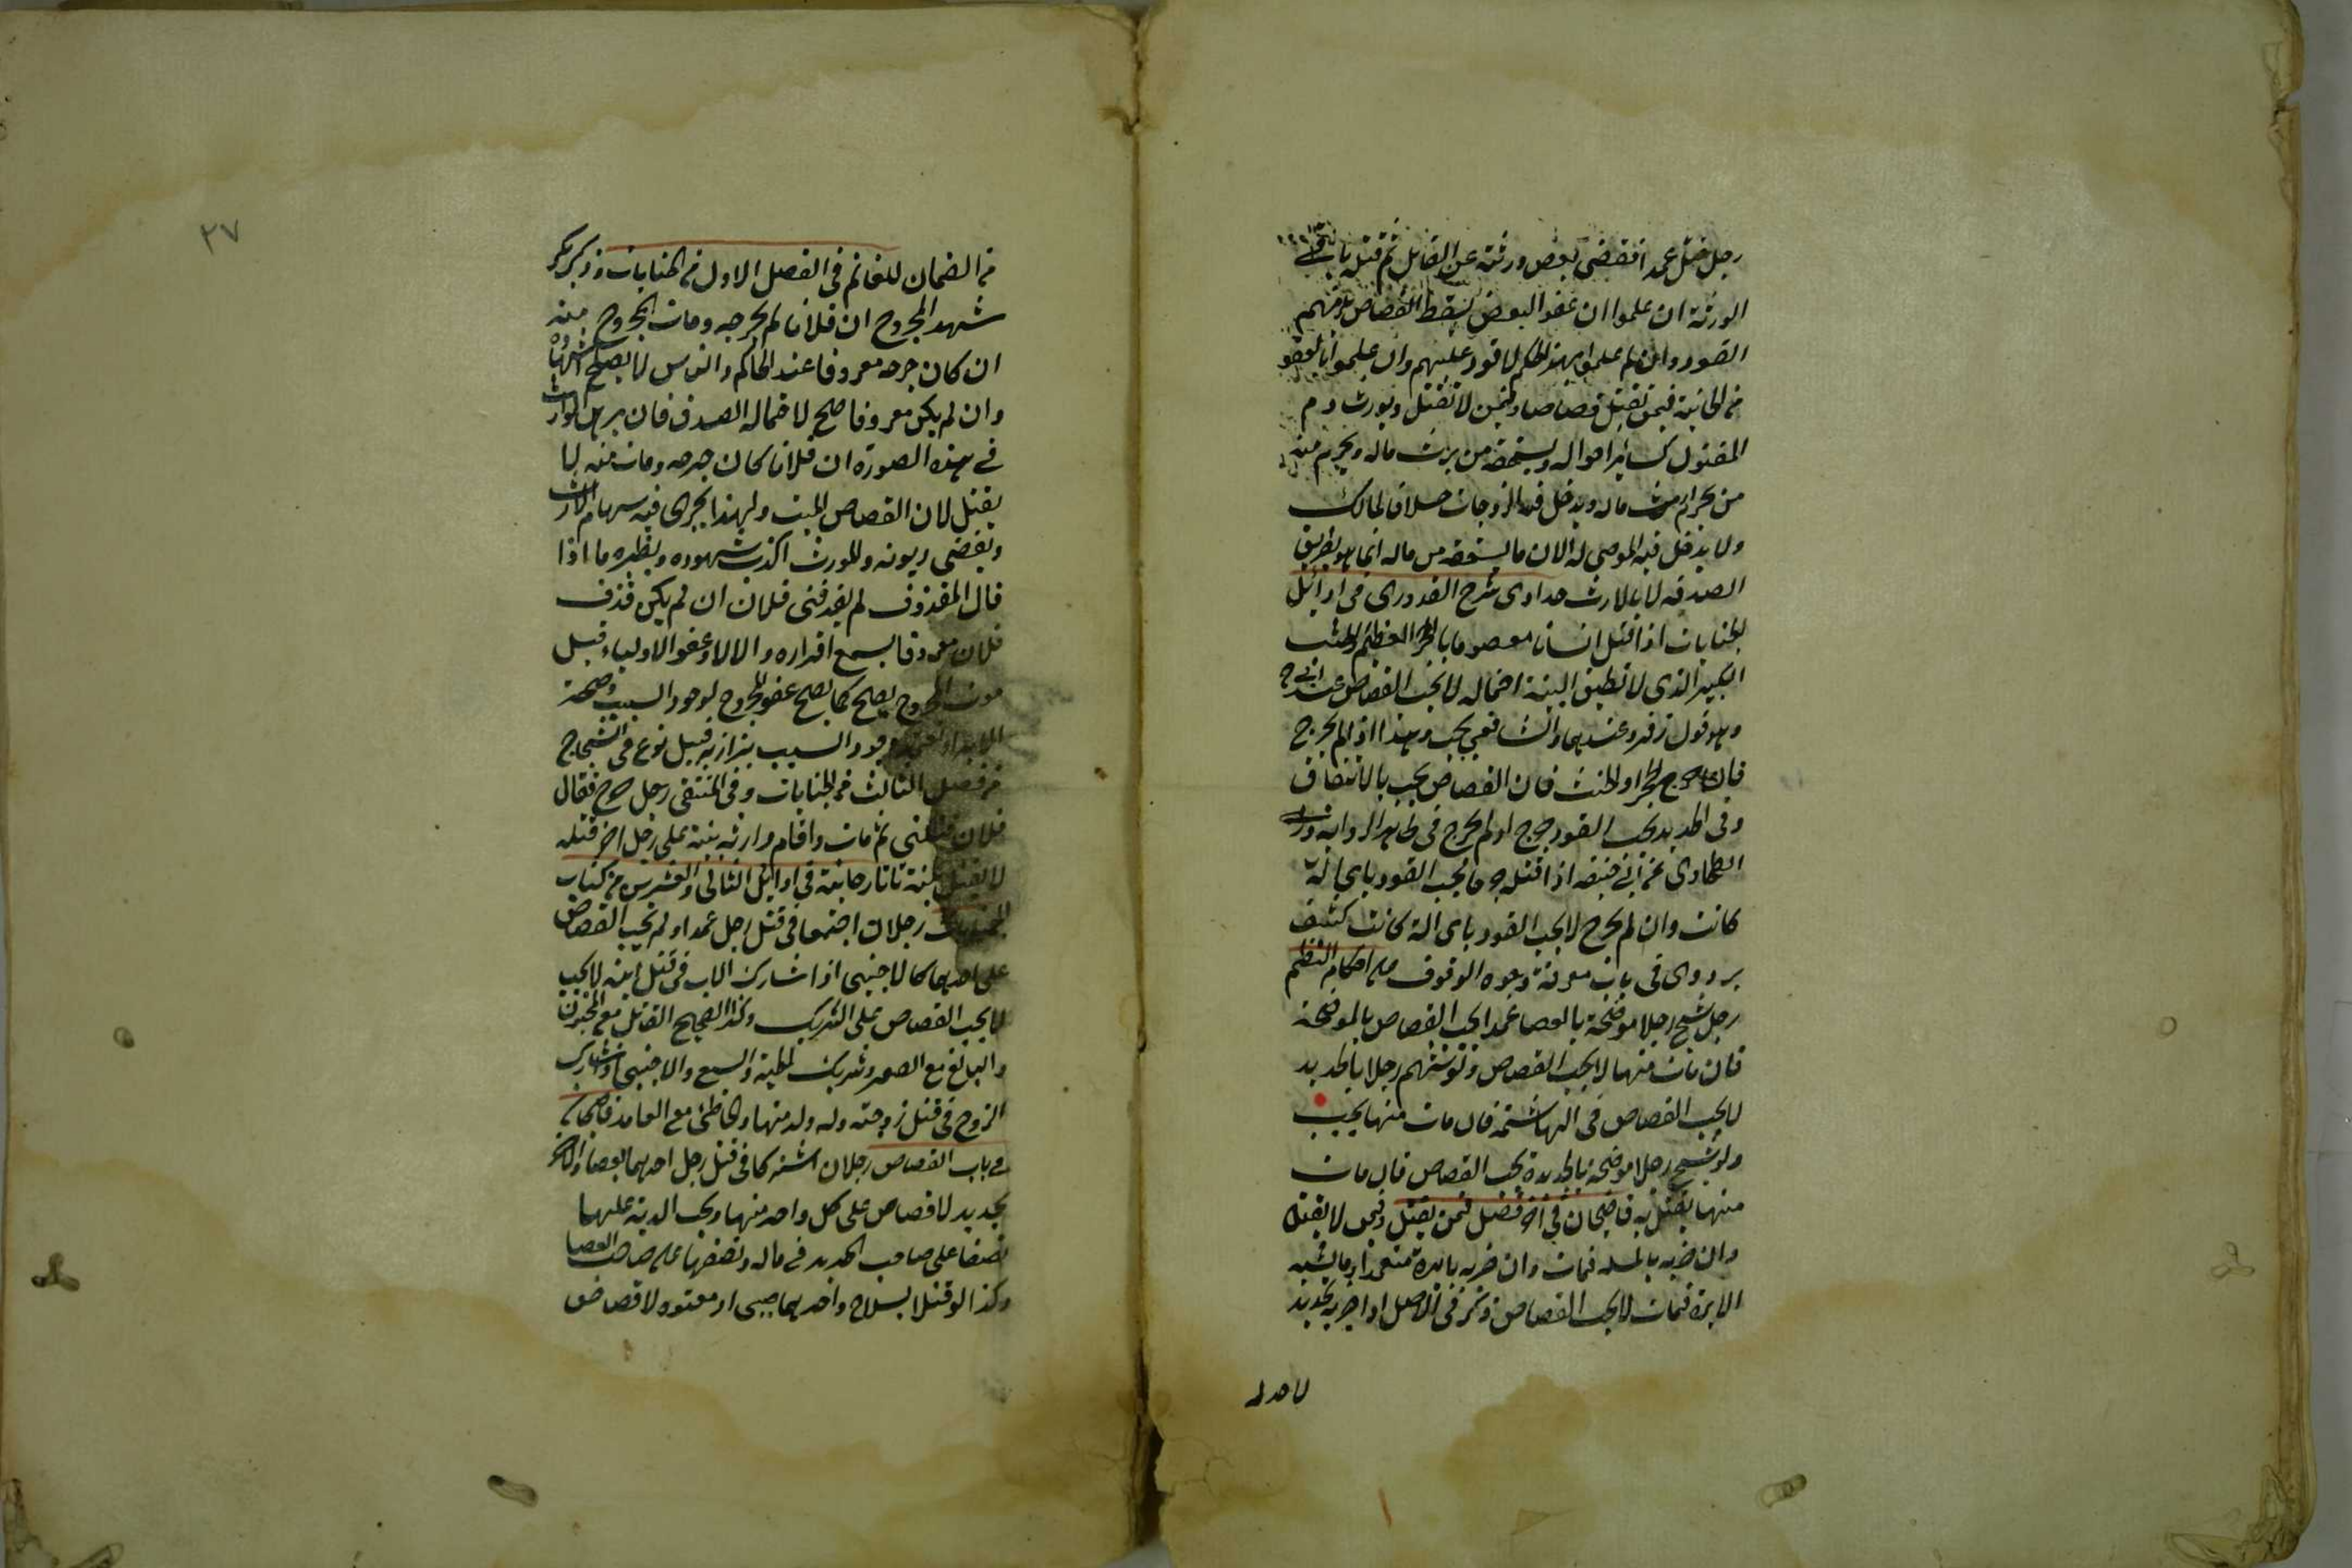 رجل قتل عمدا فقضى بعض ورثته عن القاتل ثم قتله باقي
الورثة ان علموا ان عفو البعض يسقط القصاص يلزمهم
القود وان لم يعلموا بهذا الحكم لا قود عليهم وان علموا بالعفو
من الخانية فيمن يقتل قصاصا وفيمن لا يقتل ويورث دم
المقتول كسائر امواله ويستحقه من يرث ماله ويحرم منه
من يحرم ارث ماله ويدخل فيه الزوجات خلافا لمالك
ولا يدخل فيه الموصى له لان ما يستحقه من ماله انما هو بطريق
الصدقة لا بالارث حدادى شرح القدورى فى اوائل
الجنايات اذا قتل انسانا معصوما بالحجر العظيم والخشب
الكبير الذى لا تطيق البنية احتماله لا يجب القصاص عند ابي ح
وهو قول زفر وعندهما والشافعي يجب وهذا اذا لم يجرح
فان جرح الحجر او الخشب فان القصاص يجب بالاتفاق
وفى الحديد يجب القود جرح او لم يجرح فى ظاهر الرواية وروى
الطحاوى عن ابي حنيفه اذا قتله جرحا يجب القود باي الة
كانت وان لم يجرح لا يجب القود باى الة كانت كشف
بزدوى فى باب معرفة وجوه الوقوف على احكام النظم
رجل شج رجلا موضحة بالعصا عمدا يجب القصاص بالموضحة
فان مات منها لا يجب القصاص ولو هشم رجلا بالحديد
لا يجب القصاص فى الهاشمة فان مات منها يجب
ولو شج رجلا موضحة بالحديدة يجب القصاص فان مات
منها يقتل به قاضيخان في اخر فصل فيمن يقتل وفيمن لا يقتل
وان ضربه بالمسلة فمات وان ضربه بابرة متعمدا وما يشبه
الابرة فمات لا يجب القصاص وذكر فى الاصل اذا ضربه بحديد
لا حد له
٣٧
من الضمان للغانم فى الفصل الاول من الجنايات وذكر بكر
شهد المجروح ان فلانا لم يجرحه ومات المجروح منه
ان كان جرحه معروفا عند الحاكم والناس لا يصح اشهاده
وان لم يكن معروفا صح لاحتمال الصدق فان برهن الوارث
في هذه الصورة ان فلانا كان جرحه ومات منه لا
يقبل لان القصاص للميت ولهذا يجرى فيه سهام الارث
ويقضى ديونه والمورث اكذب شهوده ونظيره ما اذا
قال المقذوف لم يقذفنى فلان ان لم يكن قذف
فلان معروفا يسمع اقراره والا لا وعفو الاولياء قبل
موت المجروح يصح كما يصح عفو المجروح لوجود السبب وصحة
الابراء تعتمد وجود السبب بزازيه قبيل نوع فى الشجاج
من فصل الثالث من الجنايات وفى المنتقى رجل جرح فقال
فلان قتلنى ثم مات واقام وارثه بينة على رجل اخر قتله
لا تقبل بينته تاتارخانية فى اوائل الثانى والعشرين من كتاب
الجنايات رجلان اجتمعا فى قتل رجل عمدا ولم يجب القصاص
على احدهما كالاجنبى اذا شارك الاب فى قتل ابنه لا يجب
لا يجب القصاص على الشريك وكذا الصحيح القاتل مع المجنون
والبالغ مع الصبي وشريك الحية والسبع والاجنبى اذا شارك
الزوج فى قتل زوجته وله ولد منها والخاطئ مع العامد قاضيخان
في باب القصاص رجلان اشتركا فى قتل رجل احدهما بعصا والاخر
بحديد لا قصاص على كل واحد منهما ويجب الدية عليهما
نصفا على صاحب الحديد في ماله ونصفها على صاحب العصا
وكذا لو قتلا بسلاح واحدهما صبى او معتوه لا قصاص